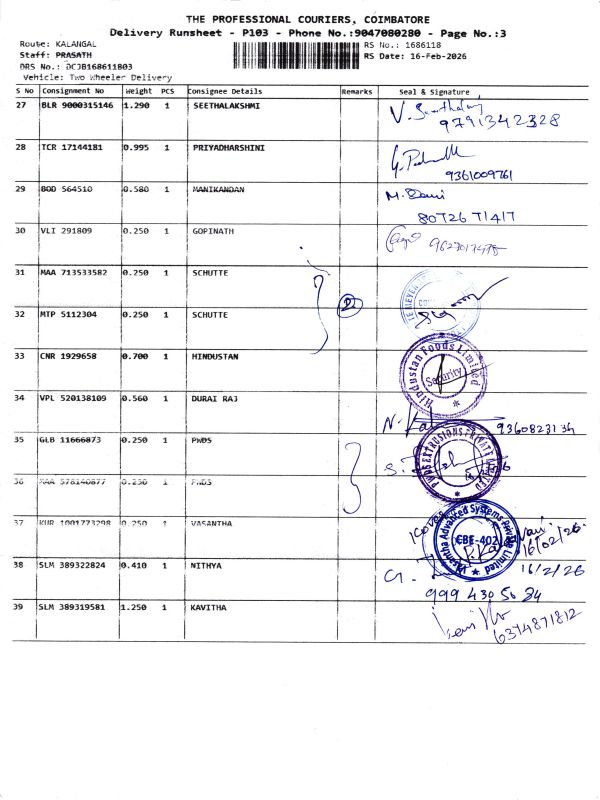 THE PROFESSIONAL COURIERS, COIMBATORE
Delivery Runsheet - P103 - Phone No.:9047080280 - Page No.:3
Route: KALANGAL
RS No.: 1686118
Staff: PRASATH
RS Date: 16-Feb-2026
DRS No.: DCJB168611803
Vehicle: Two Wheeler Delivery
S No Consignment No Weight PCS Consignee Details Remarks Seal & Signature
27 BLR 9000315146 1.290 1 SEETHALAKSHMI
9791342328
28 TCR 17144181 0.995 1 PRIYADHARSHINI
9361009761
29 BOD 564510 0.580 1 MANIKANDAN
M. Mani
80726 71417
30 VLI 291809 0.250 1 GOPINATH
31 MAA 713533582 0.250 1 SCHUTTE
32 MTP 5112304 0.250 1 SCHUTTE
33 CNR 1929658 0.700 1 HINDUSTAN
Hindustan Foods Limited
Security
34 VPL 520138109 0.560 1 DURAI RAJ
9360823134
35 GLB 11666873 0.250 1 PWDS
PWDS EXTRUSIONS PRIVATE LIMITED
36 MAA 578140877 0.250 1 PWDS
37 KUR 1001773298 0.250 1 VASANTHA
Vasantha Advanced Systems Private Limited
CBE-402
16/02/26
38 SLM 389322824 0.410 1 NITHYA
16/2/26
999 430 5684
39 SLM 389319581 1.250 1 KAVITHA
6374871812